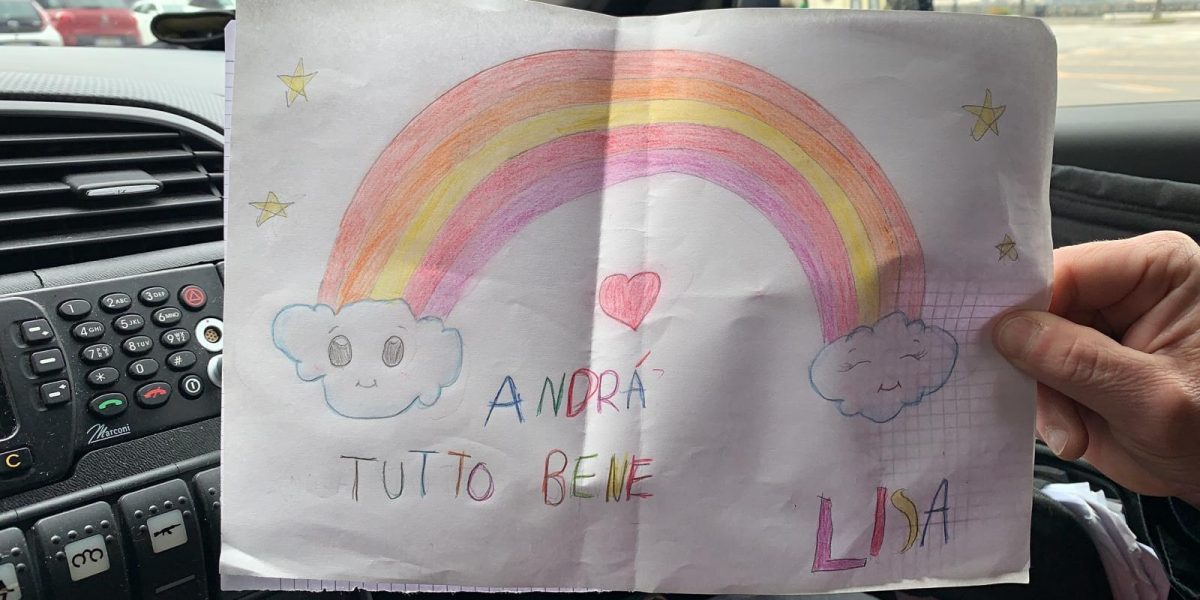 ANDRÁ
TUTTO BENE
LISA
1
2ABC
3DEF
4GHI
5JKL
6MNO
7PQRS
8TUV
9WXYZ
*
0
#
Marconi
C